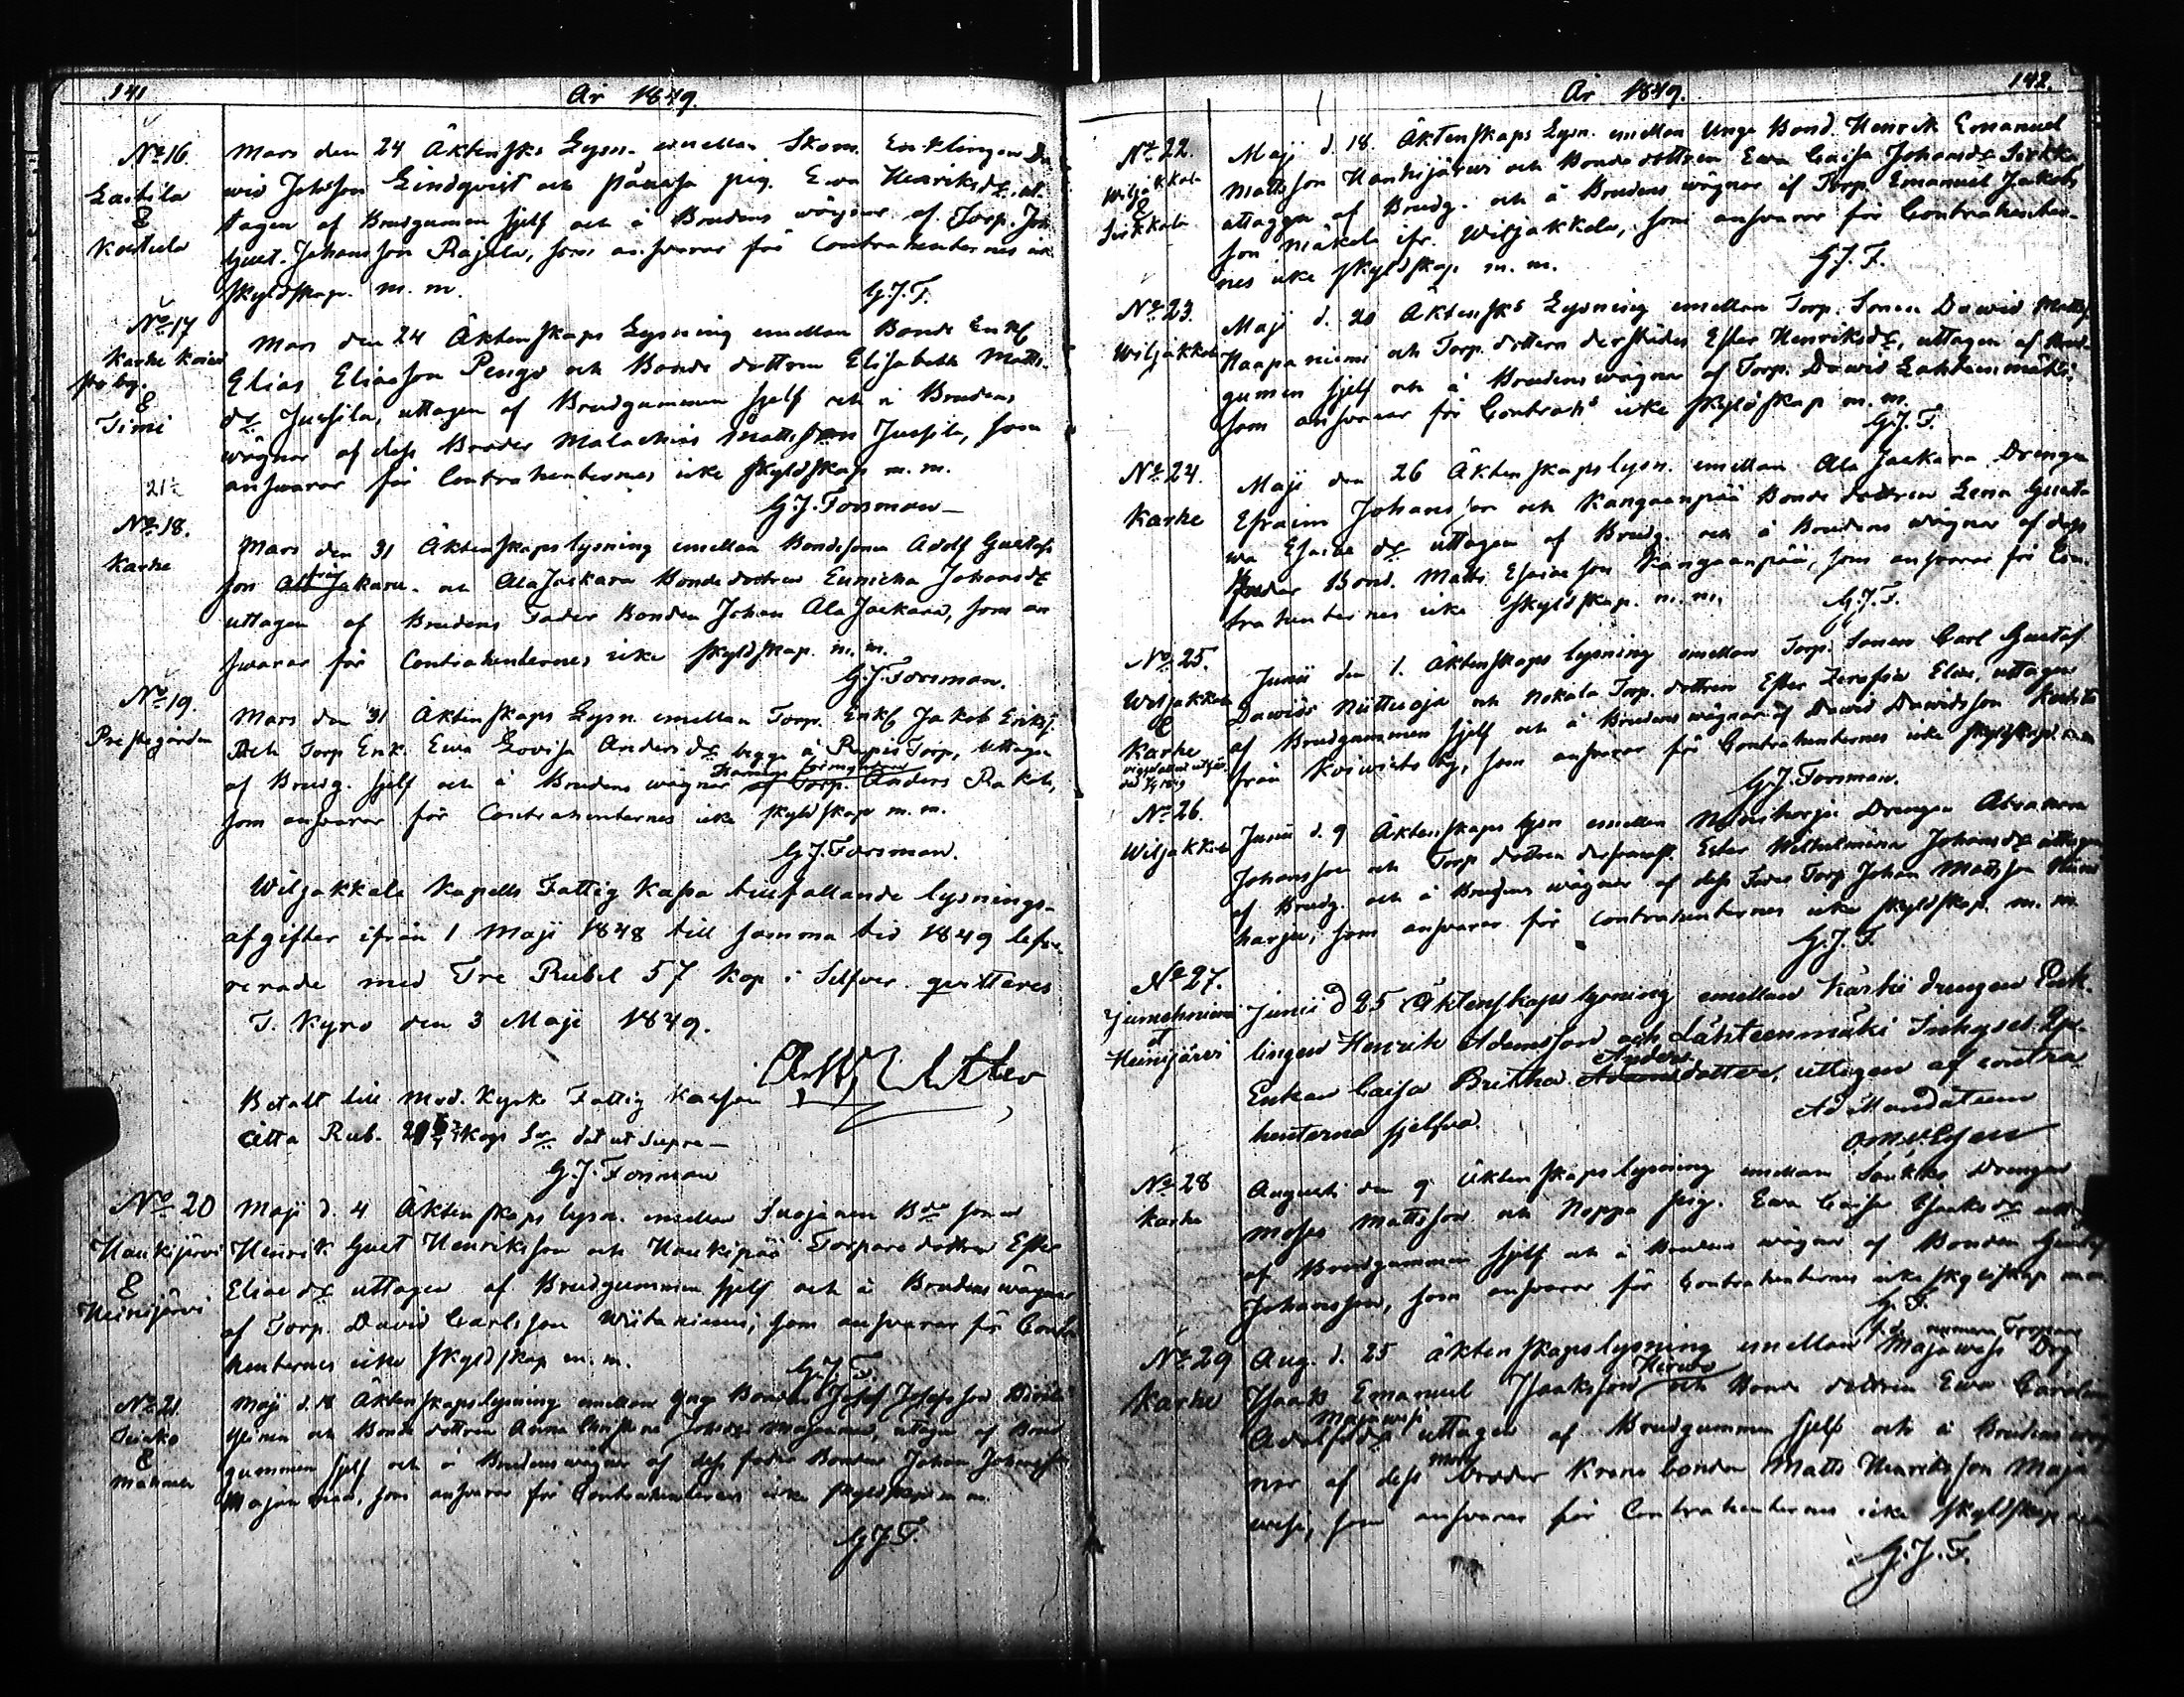 141
År 1849.
No 16.
Laitila
&
Kostula
Mars den 24 Äktensks Lysn. emellan Skom. Enklingen Da
wid Johsson Lindqvist och pig. Ewa Henriksdr. ut-
tagen af Brudgumen sjelf och å Brudens wägnar af Torp. Joh
Gust. Johansson Rajala, som answarar för Contrahenternes icke
skyldskap. m. m.
G.J.F.
No 17
Karhe
&
Timi
Mars den 24 Äktenskaps Lysning emellan Bonde Enkl
Elias Eliasson Pengö och Bonde dottren Elisabeth Matts-
dr Jussila, uttagen af Brudgummen sjelf och å Brudens
wägnar af dess Broder Malachias Mattsson Jussila, som
answarar för Contrahenternes icke skyldskap m. m.
G.J. Forsman
21½
No 18.
Karhe
Mars den 31 Äktenskapslysning emellan Bondesonen Adolf Gustafs
son Jakara och Ala Jaskara Bondedottren Eunicka Johansdr
uttagen af Brudens Fader Bonden Johan Ala Jaskara, som an
swarar för Contrahenternes icke skyldskap. m. m.
G.J. Forsman.
No 19.
Prestegården
Mars den 31 Äktenskaps Lysn. emellan Torp. Enkl Jakob Eriks.
och Torp Enk. Ewa Lovisa Andersdr begge å Torp, uttagen
af Brudg. sjelf och å Brudens wägnar af Torp. Anders Rakola,
som answarar för Contrahenternes icke skyldskap m. m.
G.J. Forsman.
Wiljakkala Kapells Fattig Kassa tillfallande lysnings-
afgifter ifrån 1 Maji 1848 till samma tid 1849 lefve-
rerade med Tre Rubel 57 kop i Silfver qvitteres
T. Kyro den 3 Maji 1849.
Betalt till Mod. Kyrk Fattig Kassan
Åtta Rub. kop Sr dat ut supra
G.J. Forsman
No 20
Haukijärvi
&
Heinijärvi
Maji d. 4 Äktenskaps lysn. emellan Suojanen Bde sonen
Henrik Gust Henriksson och Haukipää Torpare dottren Ester
Eliaedr uttagen af Brudgummen sjelf och å Brudens wägnar
af Torp. David Carlsson Wiitaniemi, som answarar för Contra
henternes icke skyldskap m. m.
G.J.F.
No 21
&
Mahnala
Maji d. 18 Äktenskapslysning emellan Yng Bonden Josef Josefsson
och Bonde dottren Anna Christina Johsdr Majanmaa, uttagen af Brud
gummen sjelf och å Brudens wägnar af dess fader Bonden Johan Johansson
Majanmaa, som answarar för Contrahenternes icke skyldskap m. m.
G.J.F.
142.
År 1849.
No 22.
Wiljakkala
&
Sirkkala
Maji d. 18. Äktenskaps Lysn. emellan Unge Bond. Henrik Emanuel
Mattsson Hanhijärwi och Bonde dottren Ewa Caisa Johansdr Sirkka
uttagen af Brudg. och å Brudens wägnar af Torp. Emanuel Jakobs
son Mäkelä ifr. Wiljakkala, som answarar för Contrahenter-
nes icke skyldskap m. m.
G.J.F.
No 23.
Wiljakkala
Maji d. 20 Äktensks Lysning emellan Torp. Sonen Dawid Matts.
Haapaniemi och Torp. dottern derstädes Ester Henriksdr, uttagen af Brud-
gumen sjelf och å Brudens wägnar af Torp. Dawid Lähteenmäki,
som answarar för Contrahs icke skyldskap m. m.
G.J.F.
No 24.
Karhe
Maji den 26 Äktenskapslysn. emellan Ala Jaskara Drengen
Efraim Johansson och Kangaanpää Bonde dottren Lena Gusta
wa Esaiae dr uttagen af Brudg. och å Brudens wägnar af dess
Broder Bond. Matts Esaiaeson Kangaanpää, som answarar för Con-
trahenternes icke skyldskap. m. m.
G.J.F.
No 25.
Wiljakkala
&
Karhe
Junii den 1. Äktenskaps lysning emellan Torp. Sonen Carl Gustaf
Dawids Niittuoja och Nokala Torp. dottren Ester Elias, uttagen
af Brudgummen sjelf och å Brudens wägnar af Dawid Dawidsson
från by, som answarar för Contrahenternes icke skyldskap m. m.
G.J. Forsman.
No 26.
Wiljakkala
Junii d. 9 Äktenskaps lysn emellan Drengen Abraham
Johansson och Torp dottren dersammast. Ester Wilhelmina Johansdr uttagen
af Brudg. och å Brudens wägnar af dess Fader Torp Johan Mattsson
harju, som answarar för Contrahenternes icke skyldskap m. m.
G.J.F.
No 27.
et
Heinijärvi
Junii d 25 Äktenskaps lysning emellan Kärki drengen Enk-
lingen Henrik Adamsson och Lähteenmäki Inhyses
Enkan Caisa Britha Anders dotter, uttagen af contra
henterna sjelfva
Ad Mandatum
No 28
Karhe
Augusti den 9 Äktenskapslysning emellan Drengen
Moses Mattsson och Noppa pig. Ewa Caisa Isaksdr uttag
af Brudgumman sjelf och å Brudens wägnar af Bonden Gustaf
Johansson, som answarar för Contrahenternes icke skyldskap m m
G. F.
No 29
Karhe
Aug. d. 25 äktenskapslysning emellan Majawesi Drg
Isaak Emanuel Isaaksson och Bonde dottren Ewa Carolina
Adolfsdr Majawesi uttagen af Brudgummen sjelf och å Brudens wäg-
nar af dess morbroder Krono bonden Matts Henriksson Maja
wesi, som answarar för Contrahenternes icke skyldskap m m
G.J.F.